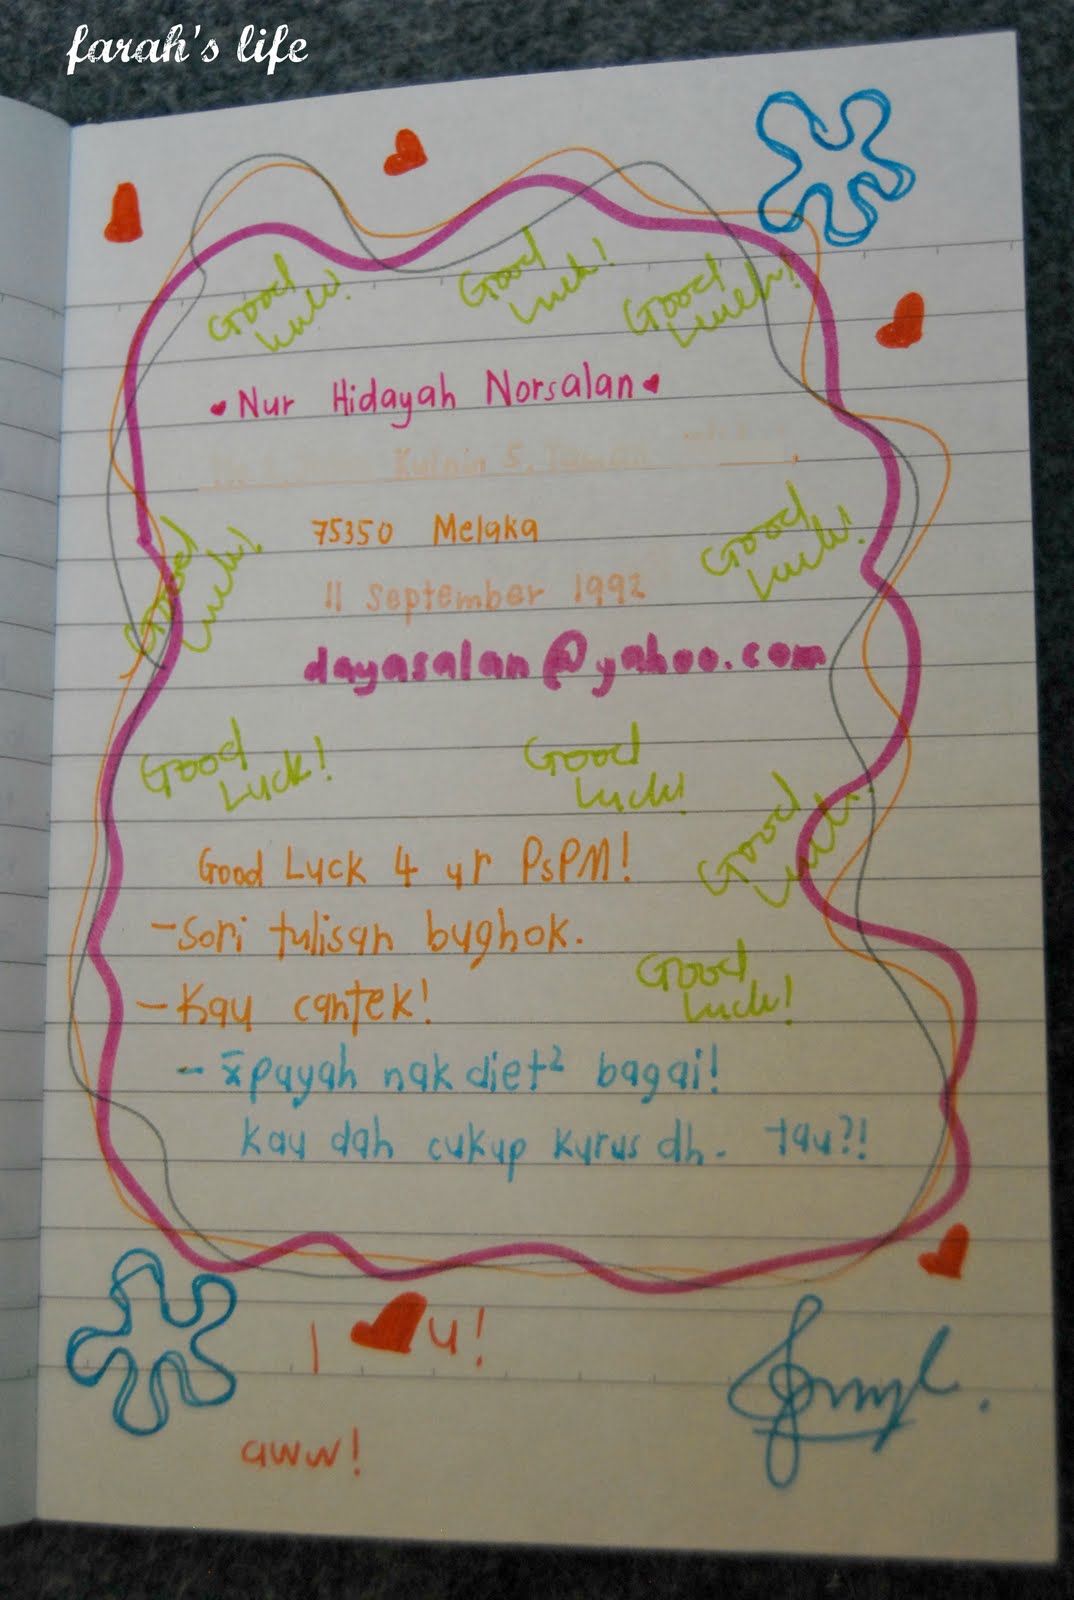 farah's life
Good Luck!
Good Luck!
Good Luck!
Nur Hidayah Norsalan
75350 Melaka
11 September 1992
dayasalan@yahoo.com
Good Luck!
Good Luck!
Good Luck!
Good Luck!
Good Luck!
Good Luck 4 yr PsPM!
-Sori tulisan bughok.
Good Luck!
-Kau cantek!
- x payah nak diet² bagai!
Kau dah cukup kurus dh. tau?!
I ♥ u!
aww!